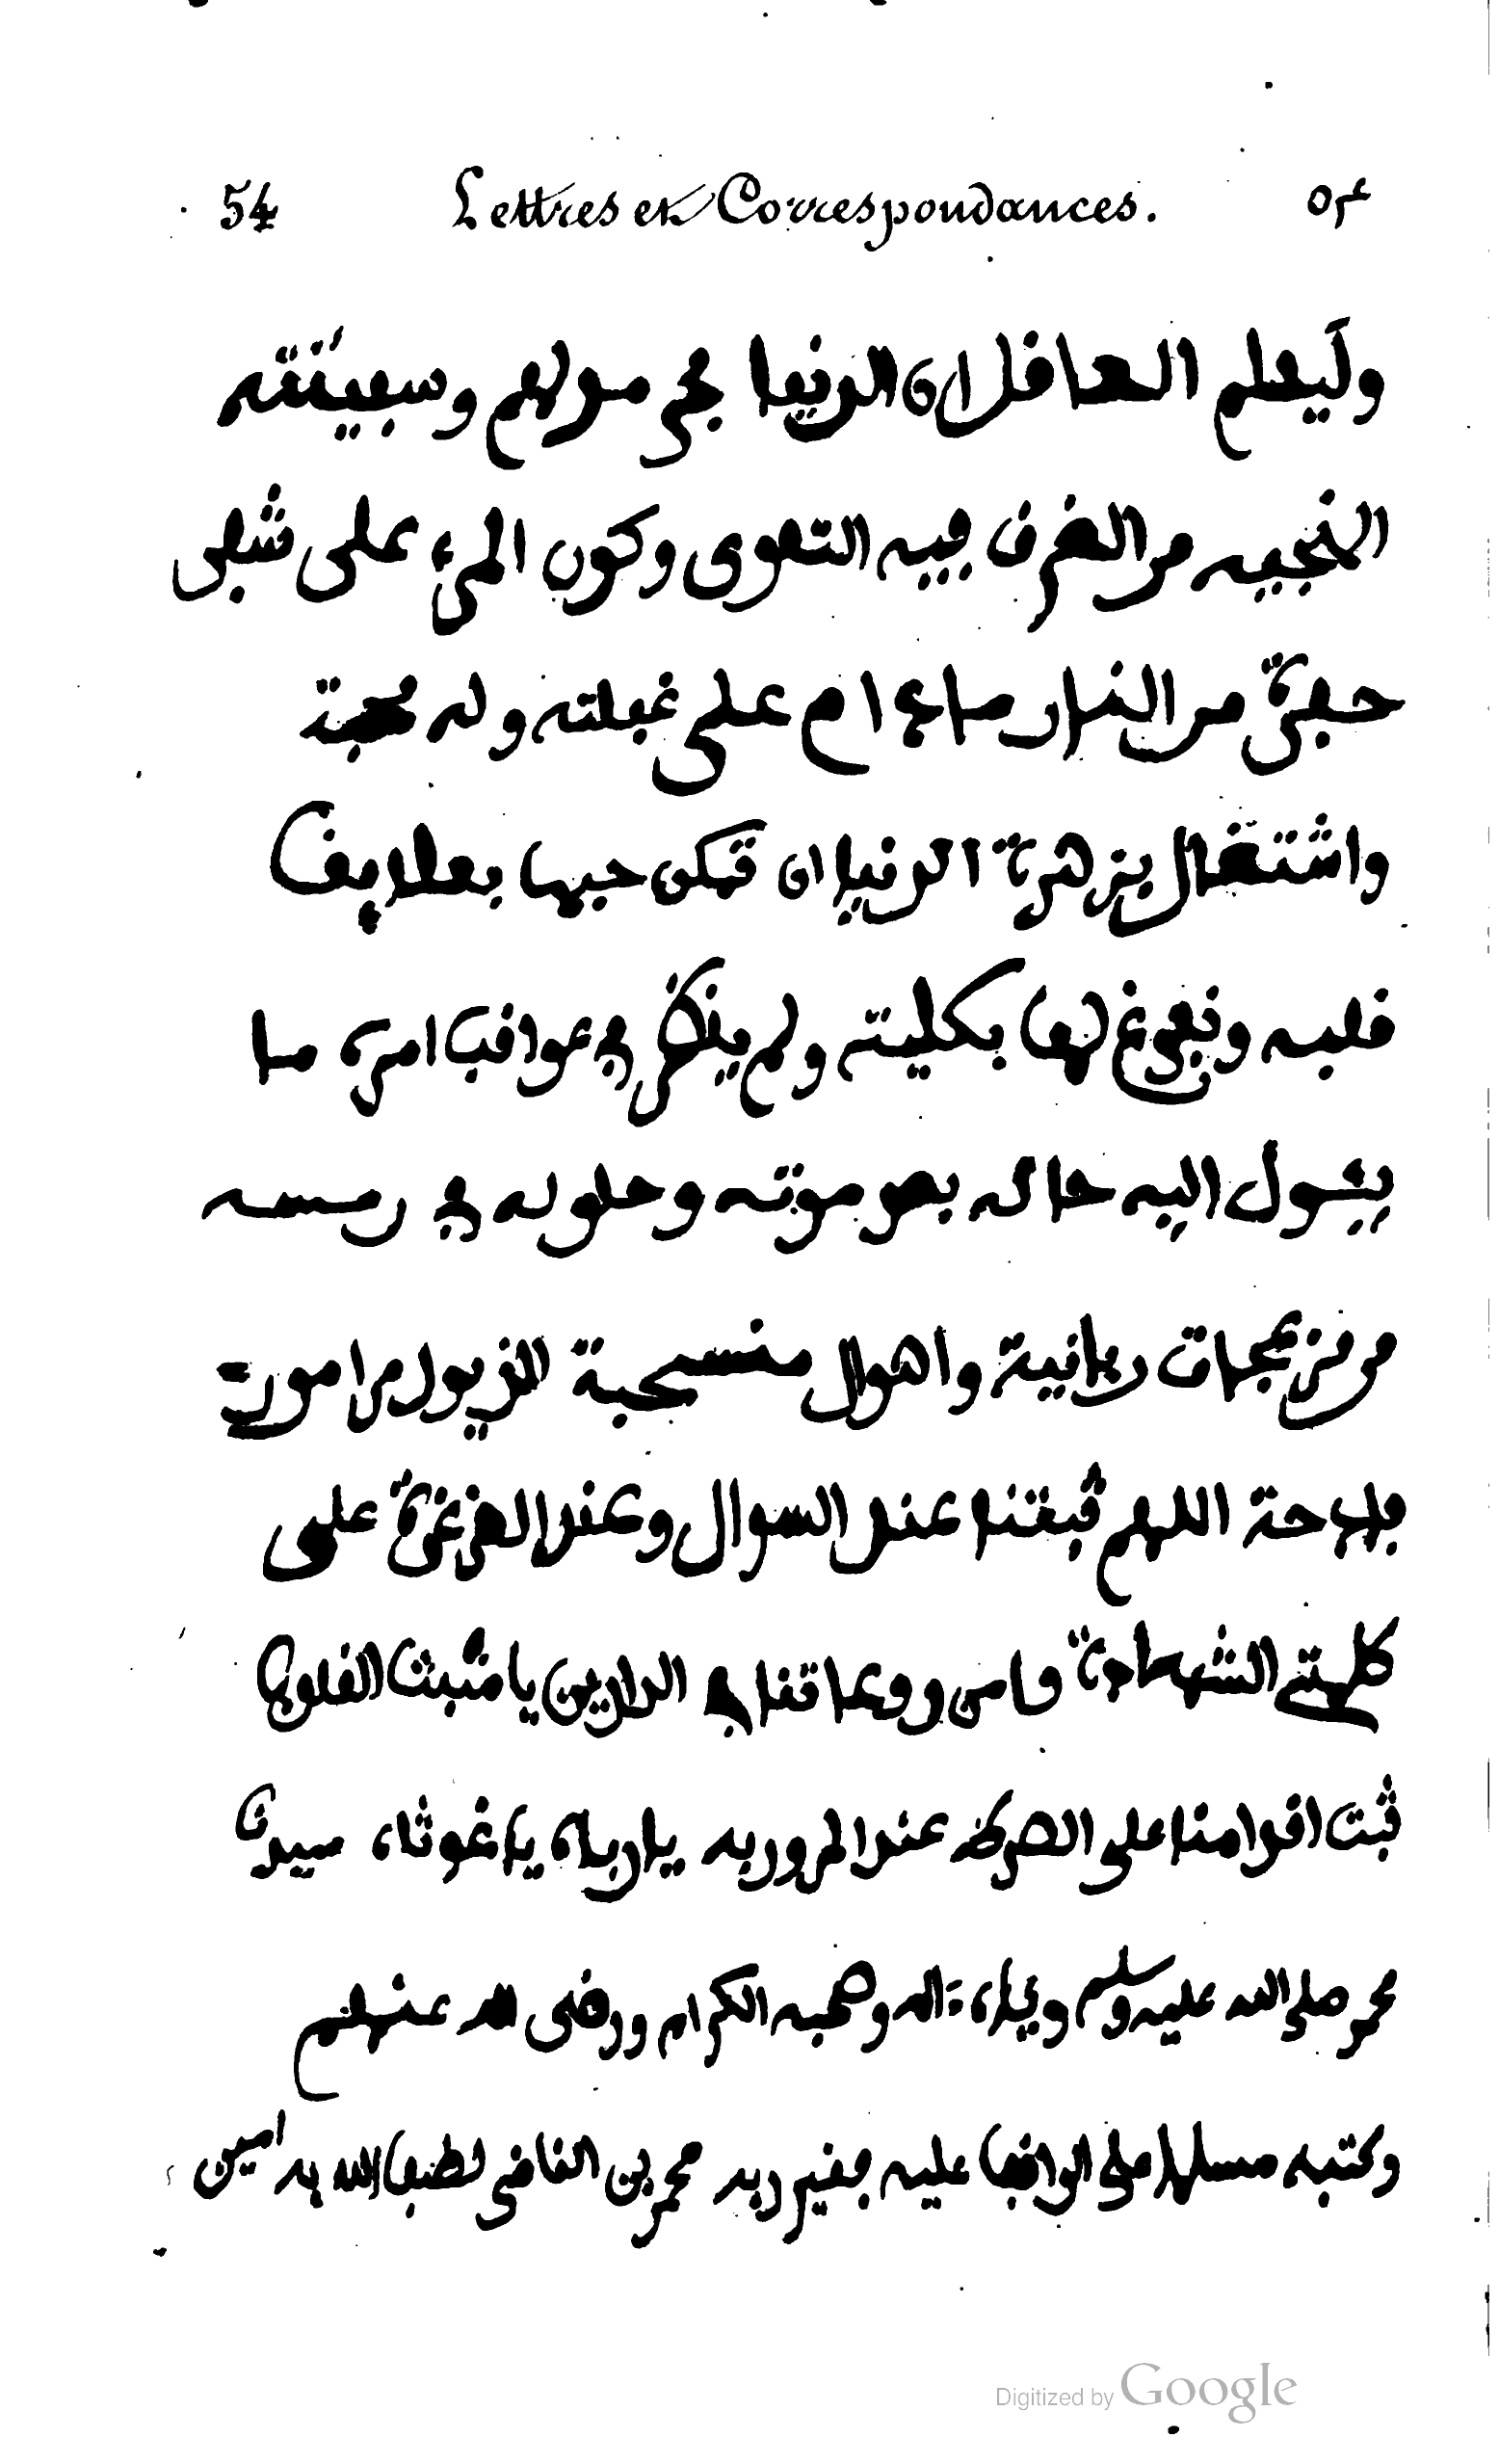 54 Lettres et Correspondances. ٥٤
وليعلم العاقل ان الدنيا بحر مولهم وسفينته
المنجيه من الغرق فيه التقوى وكون المرء على شفى
حفرة من النار ماءام على غفلته وله محبة
واشتغال بزهرة الدنيا ان تمكن حبها بطرايف
قلبه وتفرغ لها بكليته ولم ينظر في عواقب امره ما
يئول اليه حاله بعد موته وحلوله في رمسه
من مزعجات ربانية واهوال منسحبة الذيول من امور
فادحة اللهم ثبتنا عند السوال وعند الغرغرة على
كلمتي الشهادة وامن روعاتنا في الدارين يا مثبت القلوب
ثبت اقدامنا على الصرط عند المرور به يا رباه يا غوثاه سيدنا
محمد صلى الله عليه وسلم وبجاه ءاله وصحبه الكرام ورضى الله عنهم
وكتبه مسلما على الواقف عليه فقير ربه محمد بن القاضي لطف الله به امين
Digitized by Google